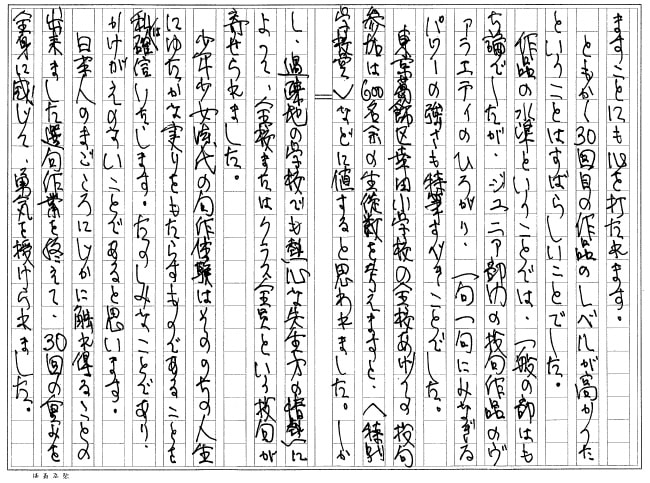 ますことにも心を打たれます。
ともかく30回目の作品のレベルが高かった
ということはすばらしいことでした。
作品の水準ということでは、一般の部はも
ち論でしたが、ジュニア部門の投句作品のヴ
ァラエティのひろがり、一句一句にみなぎる
パワーの強さも特筆すべきことでした。
東京葛飾区幸田小学校の全校あげての投句
参加は600名余の生徒数を考えますと、〈特別
学校賞〉などに値すると思われました。しか
し、過疎地の学校でも熱心な先生方の情熱に
よって、全校またはクラス全員という投句が
寄せられました。
少年少女時代の句作体験はそののちの人生
にゆたかな実りをもたらすものであることを
私は確信いたします。たのしみなことであり、
かけがえのないことであると思います。
日本人のまごころにじかに触れ得ることの
出来ました選句作業を終えて、30回の重みを
全身に感じて、勇気を授けられました。